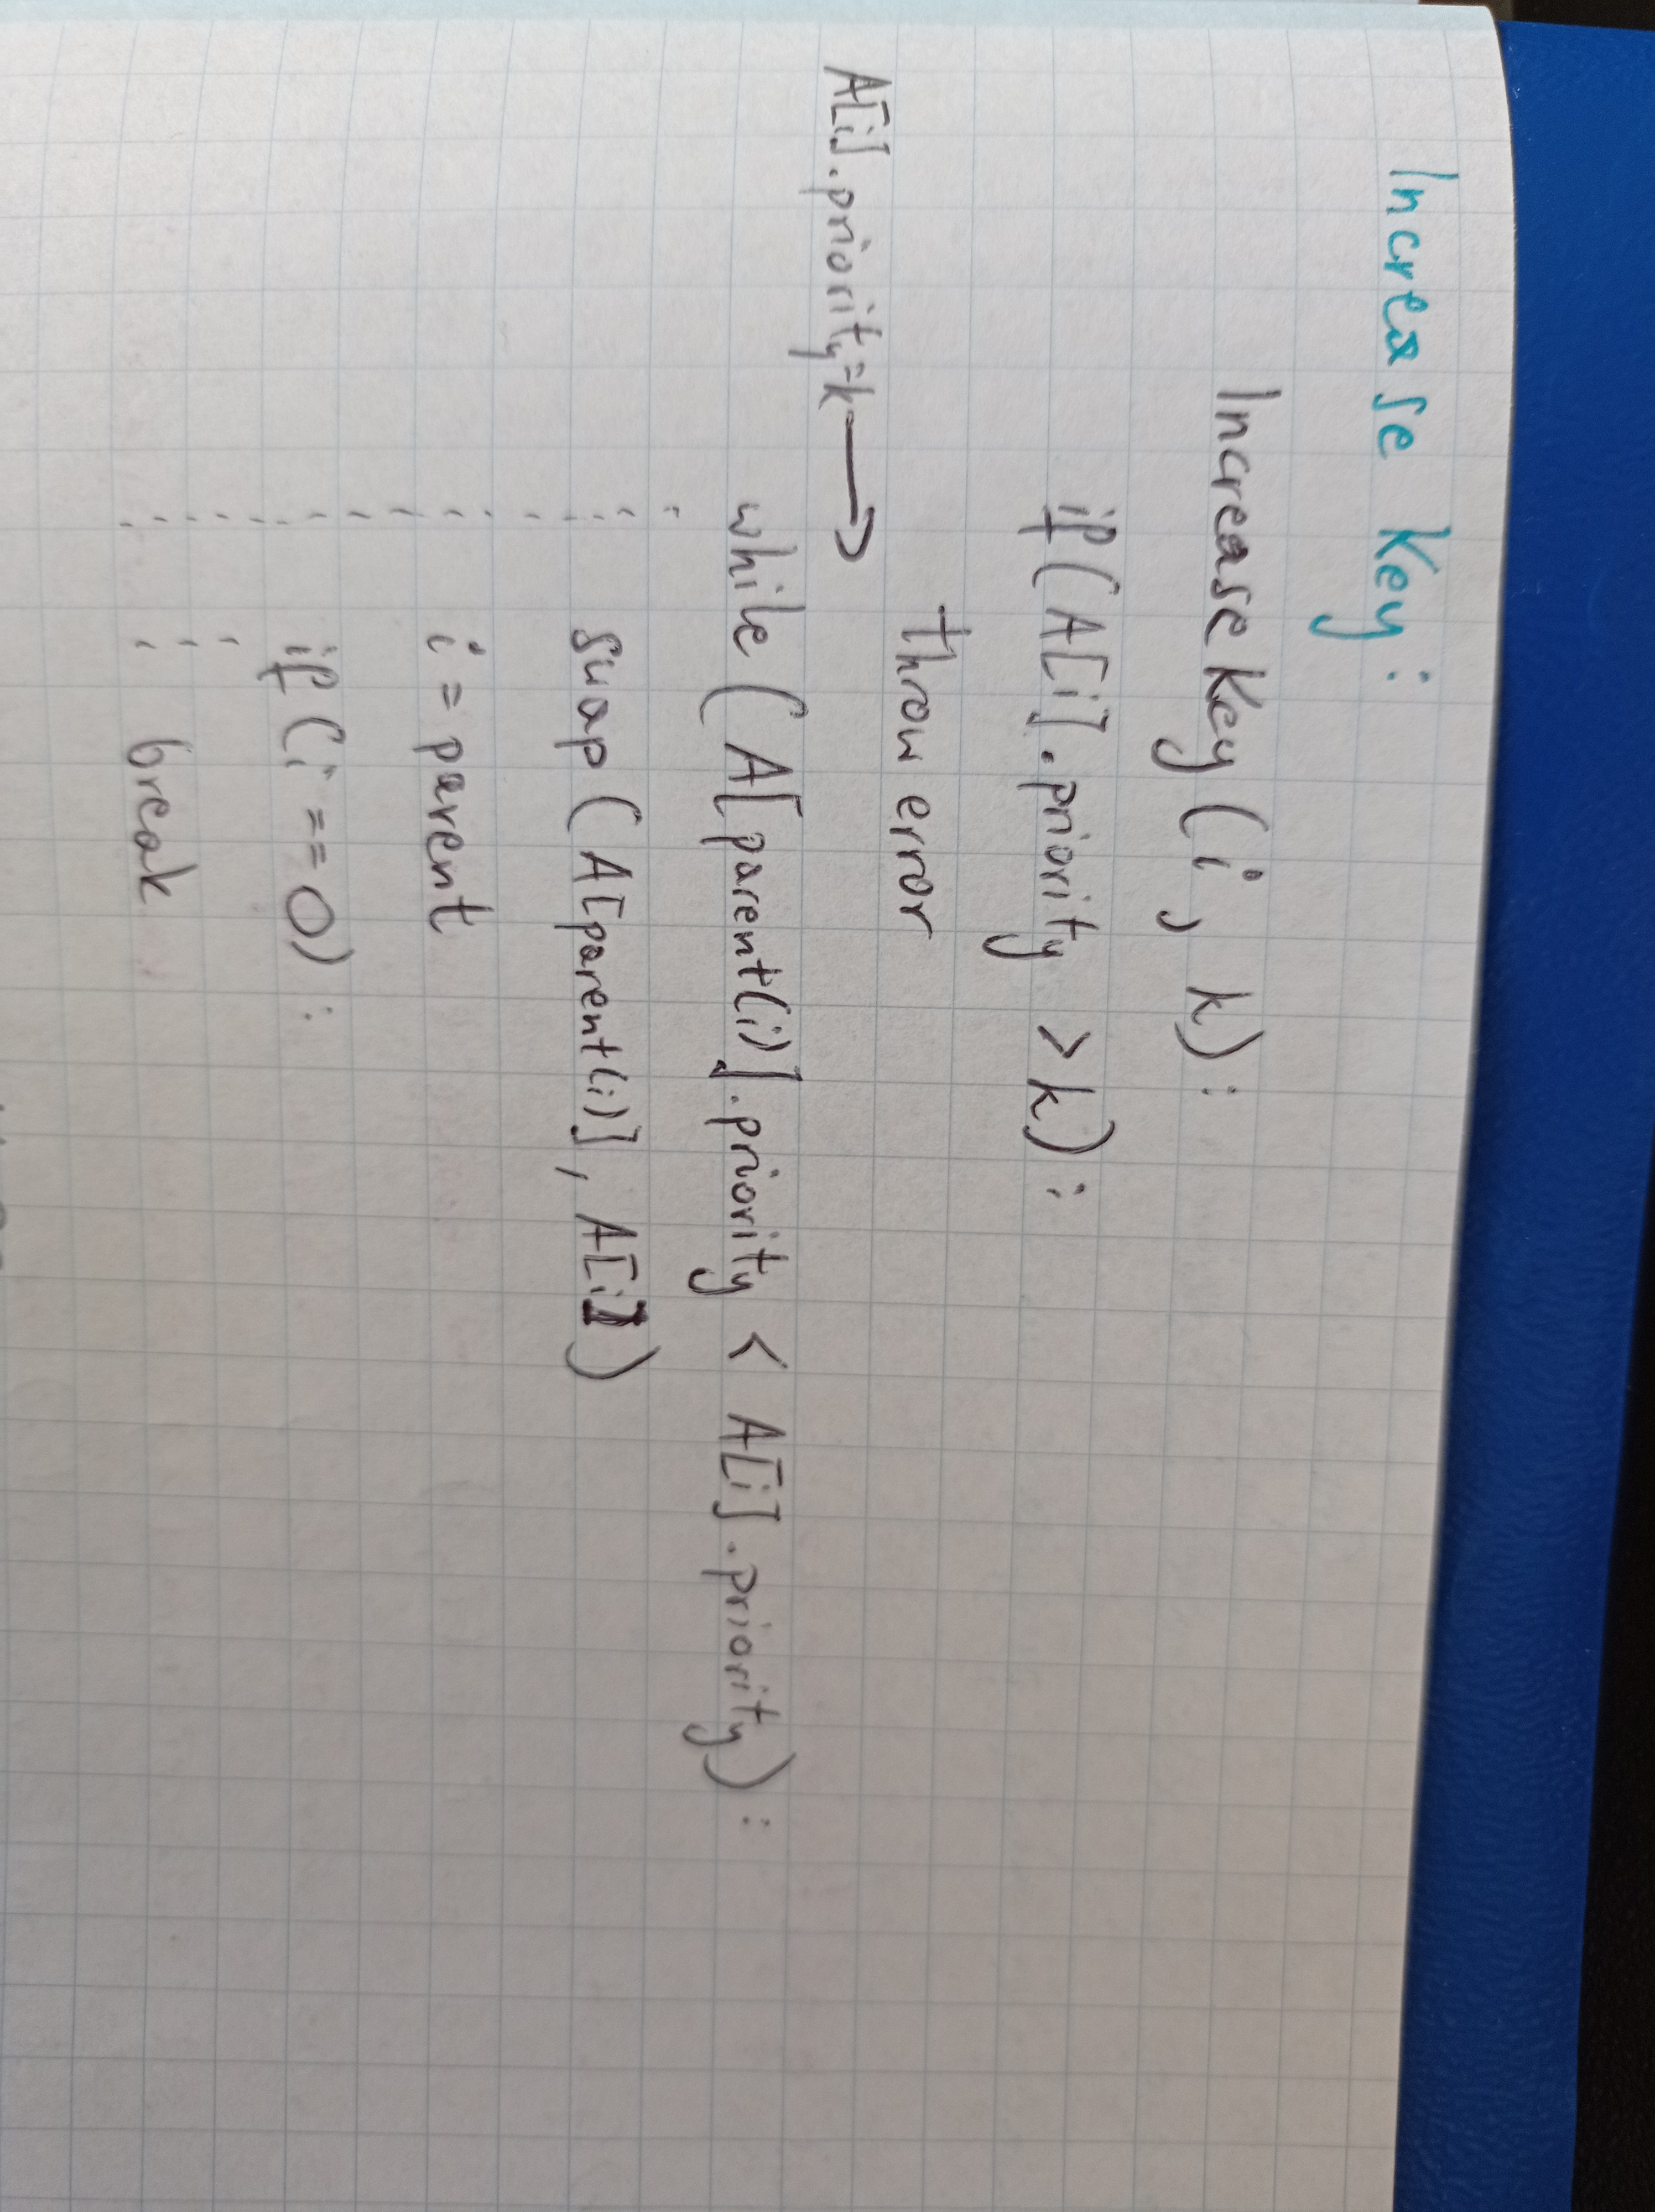 Increase Key:
IncreaseKey(i, k):
if(A[i].priority > k):
throw error
A[i].priority=k
while (A[parent(i)].priority < A[i].priority):
swap (A[parent(i)], A[i])
i = parent
if (i == 0):
break